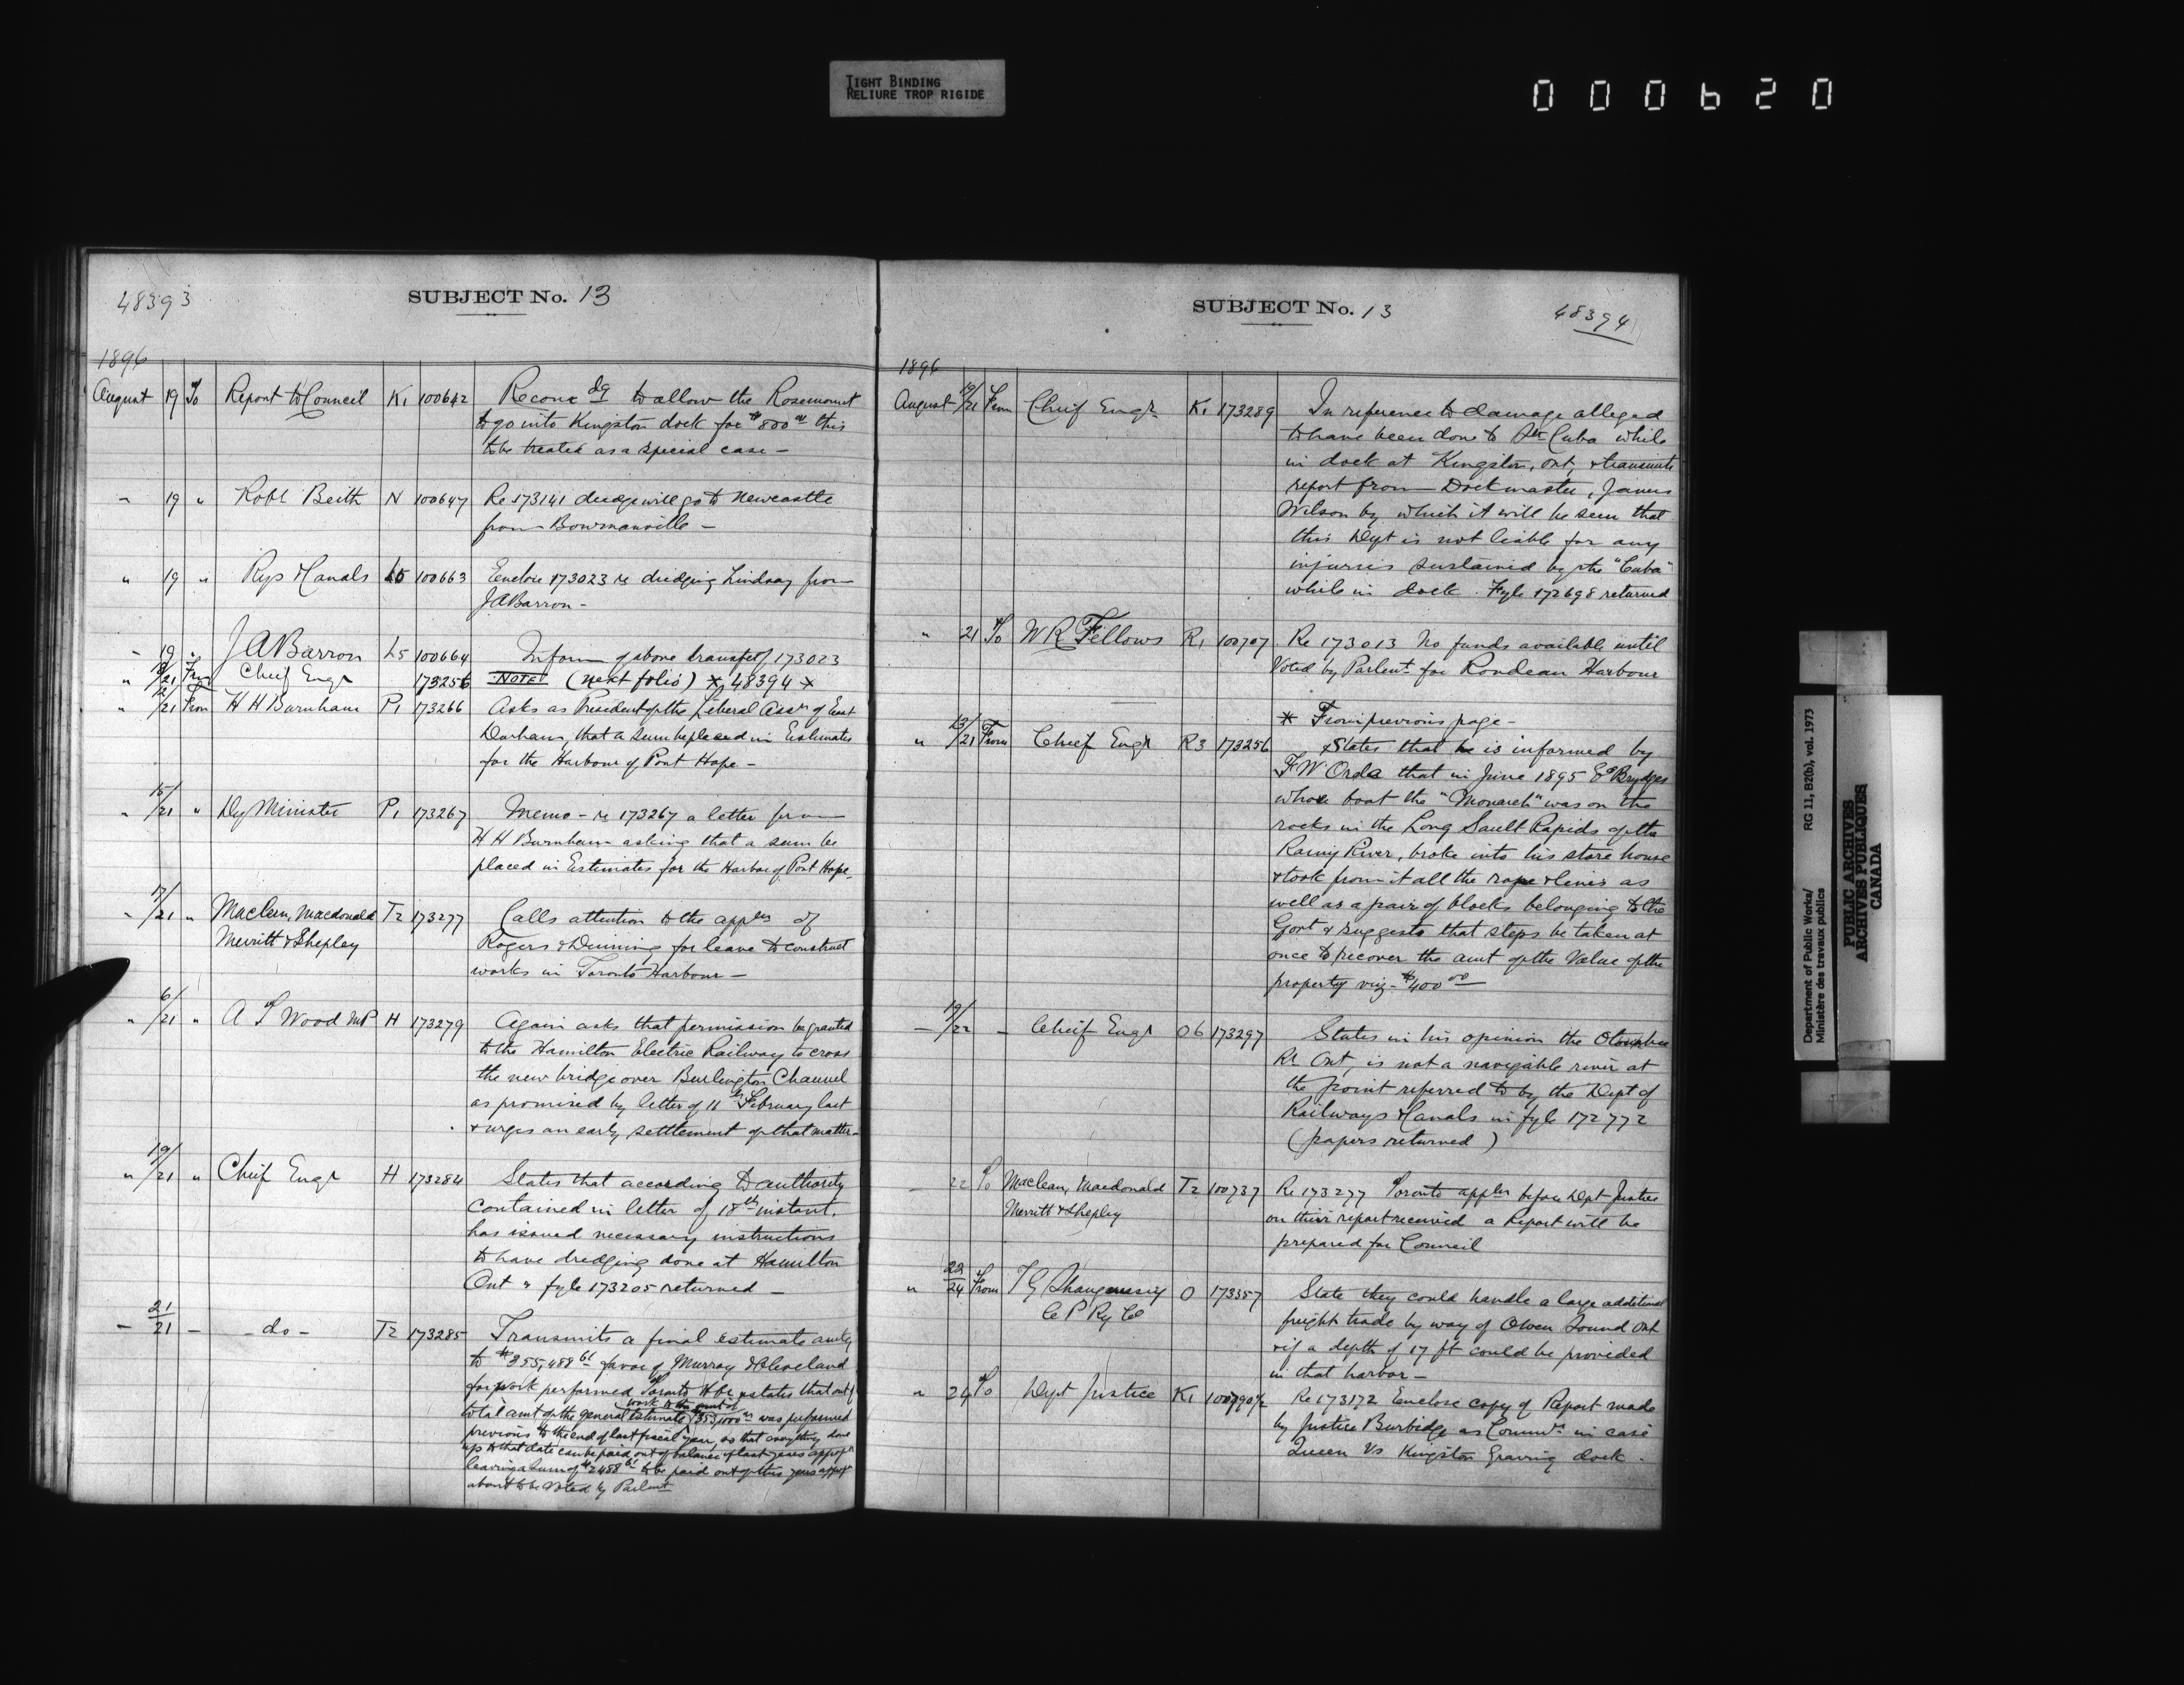 TIGHT BINDING
RELIURE TROP RIGIDE
000620
48393
SUBJECT No. 13
1896
August 19 To Report to Council K1 100642 Recomdg to allow the Rosemount
to go into Kingston dock for $800 00 this
to be treated as a special case -
" 19 " Robt Beith N 100647 Re 173141 dredge will go to Newcastle
from Bowmanville -
" 19 " Rys & Canals L5 100663 Enclose 173023 re dredging Lindsay from
J A Barron -
" 19 " J A Barron L5 100664 Inform of above transfer of 173023
" 13/21 From Chief Engr 173256 NOTE (next folio) * 48394 *
" 12/21 From H H Burnham P1 173266 Asks as President of the Liberal Assn of East
Durham, that a sum be placed in Estimates
for the Harbour of Port Hope -
" 15/21 " Dy Minister P1 173267 Memo - re 173267 a letter from
H H Burnham asking that a sum be
placed in Estimates for the Harbor of Port Hope -
" 17/21 " Maclean, Macdonald T2 173277 Calls attention to the appln of
Merritt & Shepley Rogers & Dinning for leave to construct
works in Toronto Harbour -
" 6/21 " A T Wood MP H 173279 Again asks that permission be granted
to the Hamilton Electric Railway to cross
the new bridge over Burlington Channel
as promised by letter of 11th February last
& urges an early settlement of that matter -
" 19/21 " Chief Engr H 173284 States that according to authority
contained in letter of 18th instant,
has issued necessary instructions
to have dredging done at Hamilton
Ont & fyle 173205 returned -
- 21/21 - - do - T2 173285 Transmits a final estimate amtg
to $355,488 61 favor of Murray & Cleveland
for work performed Toronto Hbr & states that out of
work to the amt of
total amt of the general estimate $353,000 00 was performed
previous to the end of last fiscal year, so that everything done
up to that date can be paid out of balance of last years appropn
leaving a sum of $2488 61 to be paid out of this years appropn
about to be voted by Parlmt
SUBJECT No. 13
48394
1896
August 19/21 From Chief Engr K1 173289 In reference to damage alleged
to have been done to Str Cuba while
in dock at Kingston, Ont, & transmits
report from Dockmaster, James
Wilson by which it will be seen that
this Dept is not liable for any
injuries sustained by the "Cuba"
while in dock. Fyle 172698 returned
" 21 To W R Fellows R1 100707 Re 173013 No funds available until
Voted by Parlent for Rondeau Harbour
* From previous page -
" 13/21 From Chief Engr R3 173256 & States that he is informed by
F W Orde that in June 1895 Brydges
whose boat the "Monarch" was on the
rocks in the Long Sault Rapids of the
Rainy River, broke into his store house
& took from it all the rope & lines as
well as a pair of blocks belonging to the
Govt & suggests that steps be taken at
once to recover the amt of the Value of the
property viz - $400 00
- 19/22 - Chief Engr O6 173297 States in his opinion the Otonabee
Rr Ont, is not a navigable river at
the point referred to by the Dept of
Railways & Canals in fyle 172772
(papers returned)
22 To Maclean, Macdonald T2 100737 Re 173277 Toronto appln before Dept Justice
Merritt & Shepley on their report received a Report will be
prepared for Council
" 22/24 From T G Shaughnessy O 173357 State they could handle a large additional
C P Ry Co freight trade by way of Owen Sound Ont
& if a depth of 17 ft could be provided
in that harbor -
" 24 To Dept Justice K1 100790½ Re 173172 Enclose copy of Report made
by Justice Burbidge as Commr in case
Queen Vs Kingston Graving dock.
Department of Public Works/
Ministère des travaux publics
RG 11, B2(b), vol. 1973
PUBLIC ARCHIVES
ARCHIVES PUBLIQUES
CANADA